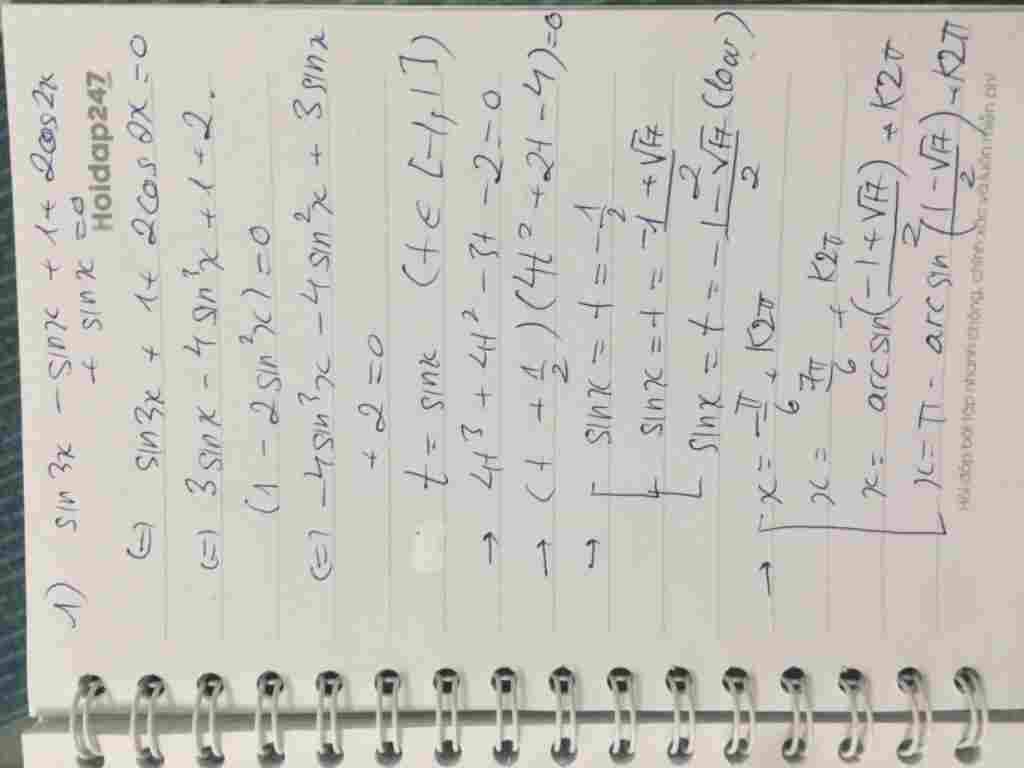 1) sin3x - sinx + 1 + 2cos2x
+ sinx = 0
Hoidap247
(=) sin3x + 1 + 2cos2x = 0
(=) 3sinx - 4sin³x + 1 + 2.
(1 - 2sin²x) = 0
(=) -4sin³x - 4sin²x + 3sinx
+ 2 = 0
t = sinx (t ∈ [-1,1])
→ 4t³ + 4t² - 3t - 2 = 0
→ (t + 1/2)(4t² + 2t - 4) = 0
→ [ sinx = t = -1/2
sinx = t = -1 + √17 / 2
sinx = t = -1 - √17 / 2 (loại)
→ [ x = -π/6 + k2π
x = 7π/6 + k2π
x = arcsin(-1 + √17 / 2) + k2π
x = π - arcsin(1 - √17 / 2) + k2π
Hỏi đáp bài tập nhanh chóng, chính xác và luôn miễn phí